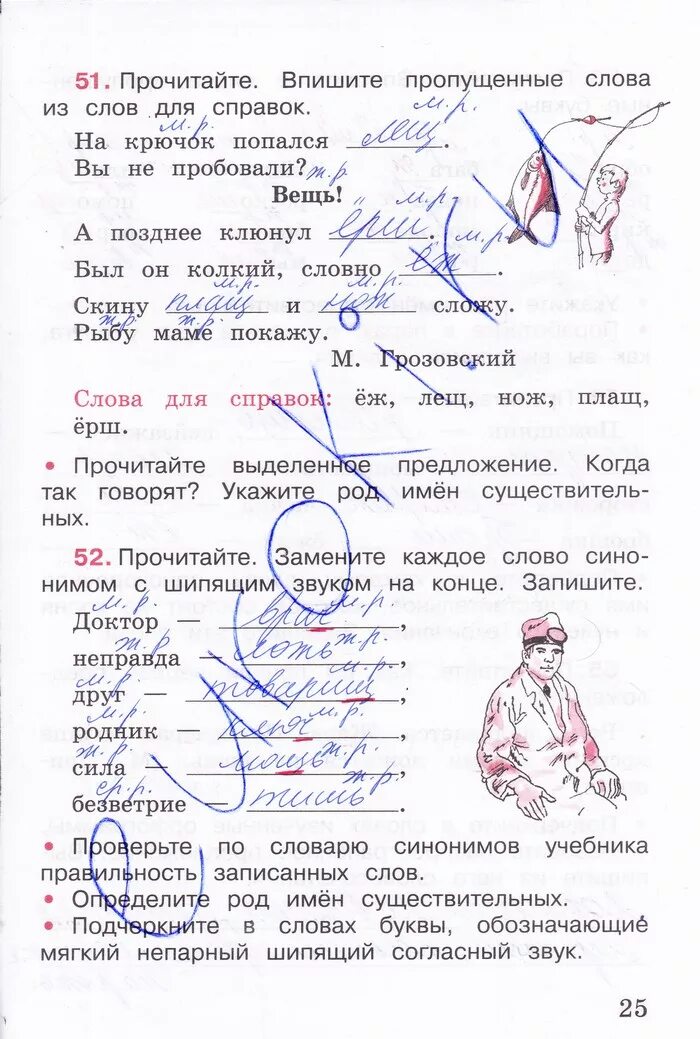 51. Прочитайте. Впишите пропущенные слова
из слов для справок.
м.р.
м.р.
На крючок попался лещ.
Вы не пробовали?
ж.р.
Вещь!
м.р.
А позднее клюнул ёрш.
м.р.
Был он колкий, словно ёж.
м.р. м.р.
Скину плащ и нож сложу.
ж.р. ж.р.
Рыбу маме покажу.
М. Грозовский
Слова для справок: ёж, лещ, нож, плащ,
ёрш.
• Прочитайте выделенное предложение. Когда
так говорят? Укажите род имён существитель-
ных.
52. Прочитайте. Замените каждое слово сино-
нимом с шипящим звуком на конце. Запишите.
м.р. м.р.
Доктор — врач,
ж.р. ж.р.
неправда — ложь,
м.р. м.р.
друг — товарищ,
м.р. м.р.
родник — ключ,
ж.р. ж.р.
сила — мощь,
ср.р. ж.р.
безветрие — тишь.
• Проверьте по словарю синонимов учебника
правильность записанных слов.
• Определите род имён существительных.
• Подчеркните в словах буквы, обозначающие
мягкий непарный шипящий согласный звук.
25